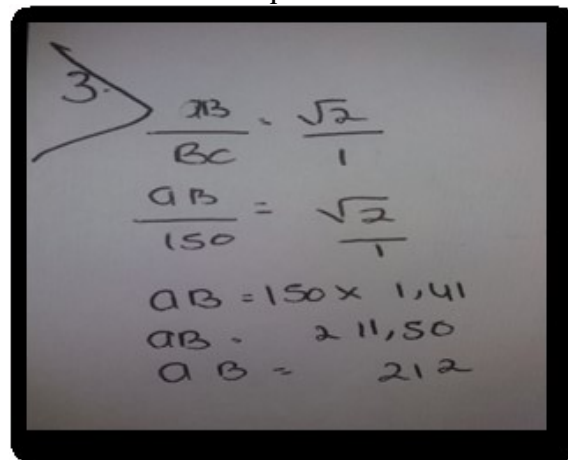 3.
AB / BC = √2 / 1
aB / 150 = √2 / 1
aB = 150 x 1,41
aB = 211,50
aB = 212